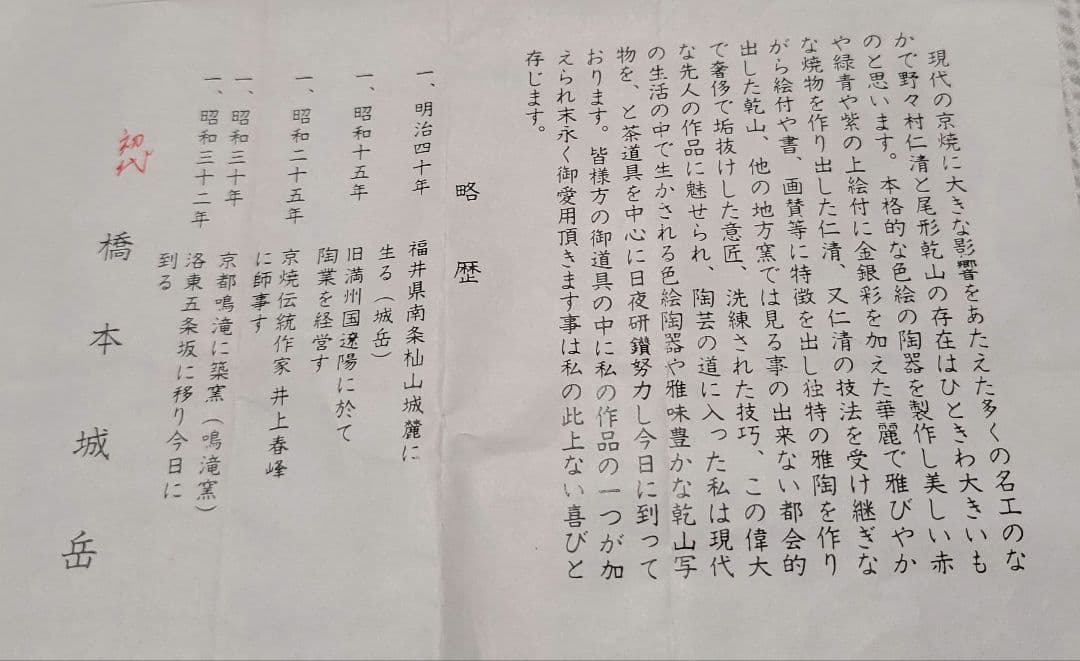 現代の京焼に大きな影響をあたえた多くの名工のな
かで野々村仁清と尾形乾山の存在はひときわ大きいも
のと思います。本格的な色絵の陶器を製作し美しい赤
や緑青や紫の上絵付に金銀彩を加えた華麗で雅びやか
な焼物を作り出した仁清、又仁清の技法を受け継ぎな
がら絵付や書、画賛等に特徴を出し独特の雅陶を作り
出した乾山、他の地方窯では見る事の出来ない都会的
で奢侈で垢抜けした意匠、洗練された技巧、この偉大
な先人の作品に魅せられ、陶芸の道に入った私は現代
の生活の中で生かされる色絵陶器や雅味豊かな乾山写
物を、と茶道具を中心に日夜研鑽努力し今日に到って
おります。皆様方の御道具の中に私の作品の一つが加
えられ末永く御愛用頂きます事は私の此上ない喜びと
存じます。
略歴
一、明治四十年 福井県南条杣山城麓に
生る(城岳)
一、昭和十五年 旧満州国遼陽に於て
陶業を経営す
一、昭和二十五年 京焼伝統作家 井上春峰
に師事す
一、昭和三十年 京都鳴滝に築窯(鳴滝窯)
一、昭和三十二年 洛東五条坂に移り今日に
到る
初代
橋本城岳